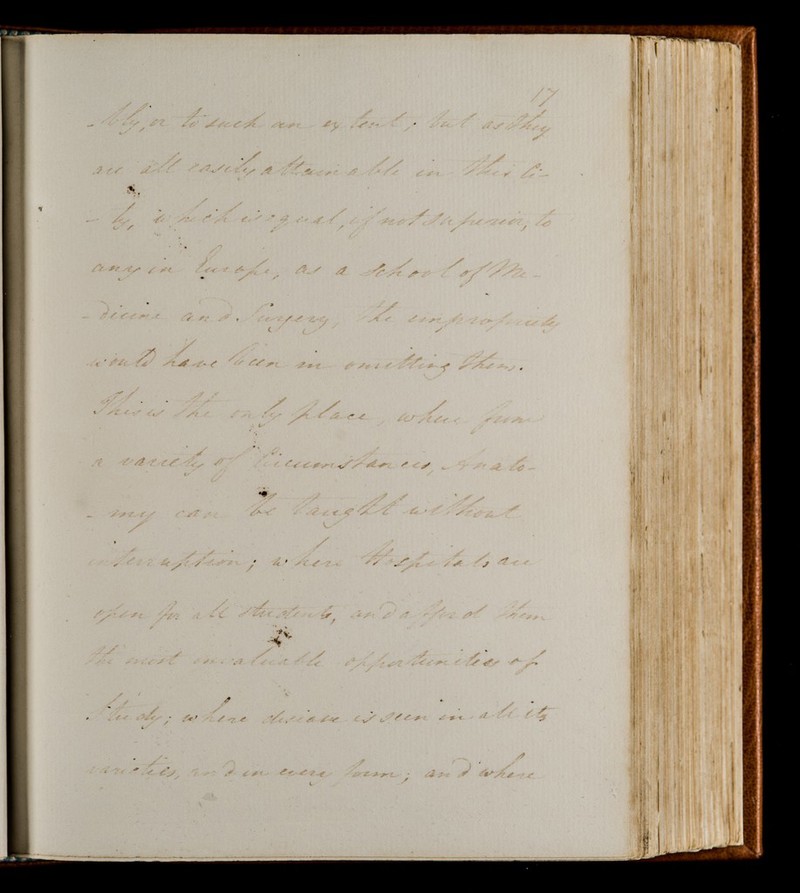 17
-bly, or to such an extent; but as they
are all easily attainable in this Ci-
- ty, which is equal, if not superior, to
any in Europe, as a School of Me-
- dicine and Surgery, the impropriety
would have been in omitting them.
This is the only place, where from
a variety of Circumstances, Anato-
- my can be taught without
interruption; where Hospitals are
open for all students, and afford them
the most invaluable opportunities of
Study; where disease is seen in all its
varieties, and in every form; and where